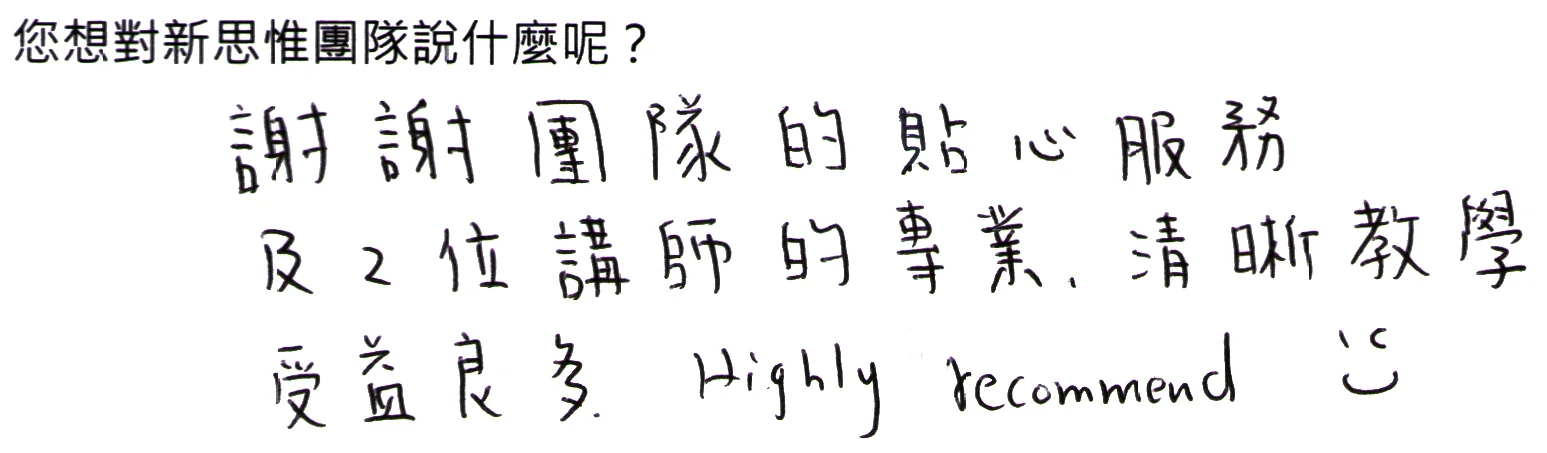 您想對新思惟團隊說什麼呢？
謝謝團隊的貼心服務
及2位講師的專業、清晰教學
受益良多. Highly recommend :)